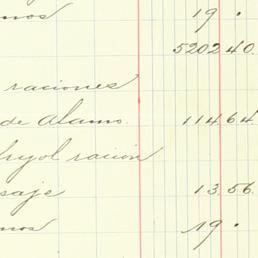 mos 19 .
520240.
raciones
de Alamo. 114.64.
frijol racion
saje 13.56.
mos 19 .